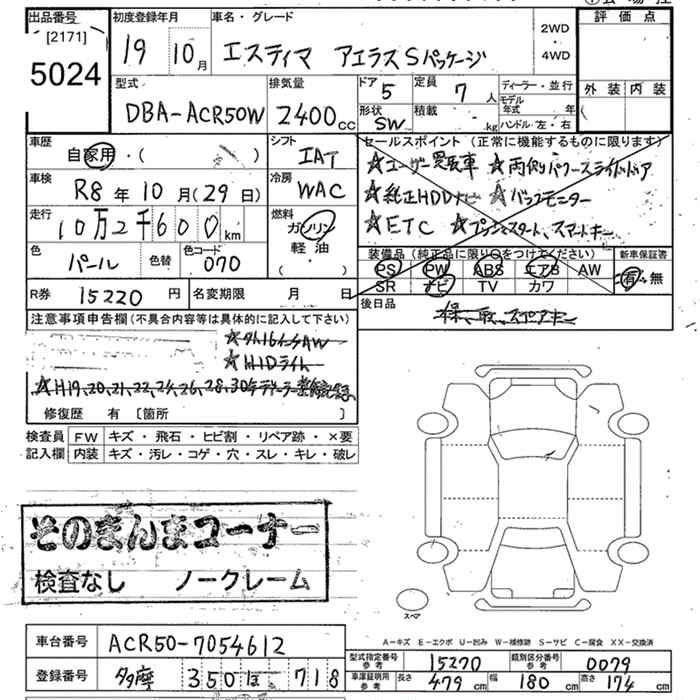 出品番号 [2171] 5024
初度登録年月 19 10月
車名・グレード エスティマ アエラスSパッケージ
2WD・4WD
評価点
外装 内装
型式 DBA-ACR50W
排気量 2400cc
ドア 5
定員 7人
形状 SW
積載 kg
ディーラー・並行
モデル年式 年
ハンドル 左・右
車歴 自家用・( )
シフト IAT
車検 R8年10月(29日)
冷房 WAC
走行 10万2千600km
燃料 ガソリン 軽油 ( )
色 パール
色替
色コード 070
R券 15220円
名変期限 月 日
セールスポイント (正常に機能するものに限ります)
☆ユーザー買取車 ☆両側パワースライドドア
☆純正HDDナビ ☆バックモニター
☆ETC ☆プッシュスタート、スマートキー
装備品 (純正品に限り○をつけてください)
PS PW ABS エアB AW
SR ナビ TV カワ
新車保証書
有・無
後日品
保、取、スペアキー
注意事項申告欄(不具合内容等は具体的に記入して下さい)
☆HIDライト
☆H19,20,21,22,24,26,28,30年ディーラー整備記録簿
修復歴 有 〔箇所 〕
検査員記入欄
FW キズ・飛石・ヒビ割・リペア跡・×要
内装 キズ・汚レ・コゲ・穴・スレ・キレ・破レ
そのまんまコーナー
検査なし ノークレーム
スペア
A―キズ E―エクボ U―凹み W―補修跡 S―サビ C―腐食 XX―交換済
車台番号 ACR50-7054612
登録番号 多摩 350 ほ 718
型式指定番号 参考 15220
類別区分番号 参考 0079
車庫証明用 参考 長さ 479cm 幅 180cm 高さ 174cm